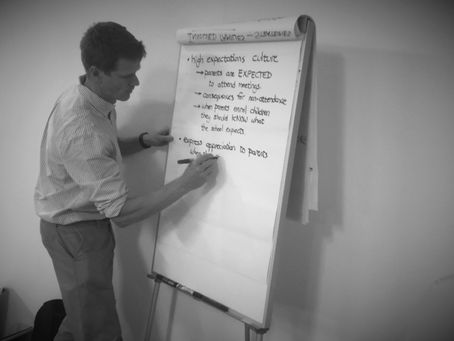 • high expectations culture
→ parents are EXPECTED
to attend meetings
→ consequences for non-attendance
→ when parents enrol children
they should KNOW what
the school expects
• express appreciation to parents
when